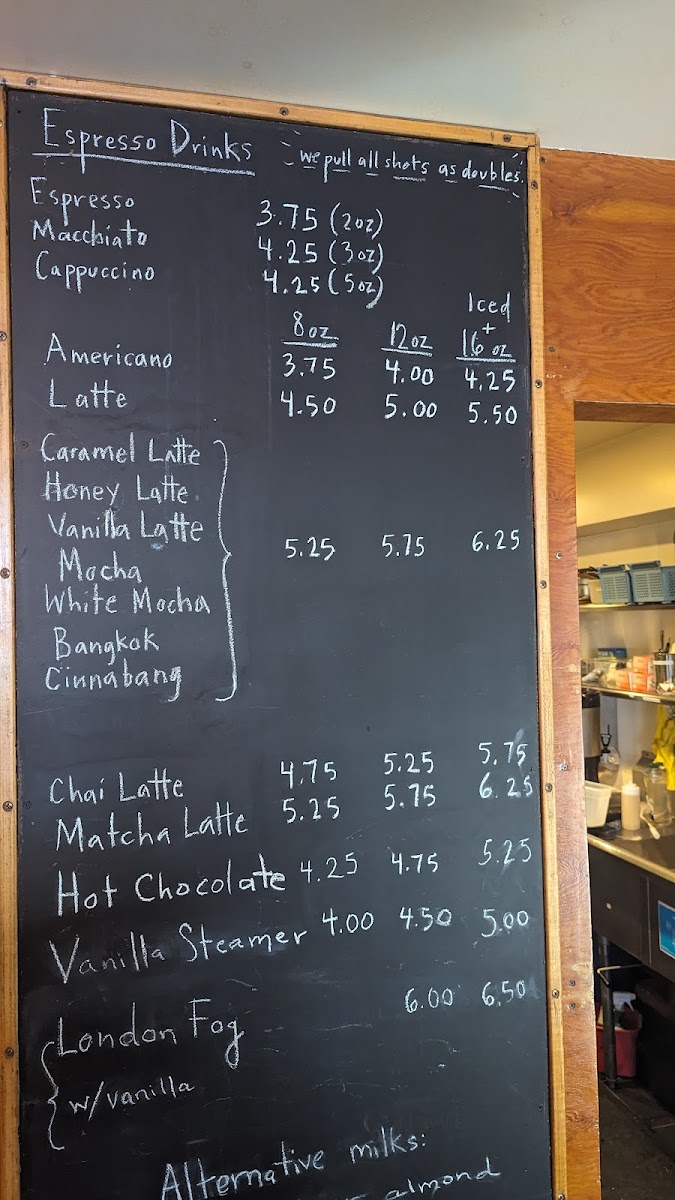 Espresso Drinks we pull all shots as doubles.
Espresso 3.75 (2oz)
Macchiato 4.25 (3oz)
Cappuccino 4.25 (5oz)
Iced
8oz 12oz + 16oz
Americano 3.75 4.00 4.25
Latte 4.50 5.00 5.50
Caramel Latte
Honey Latte
Vanilla Latte
5.25 5.75 6.25
Mocha
White Mocha
Bangkok
Cinnabang
Chai Latte 4.75 5.25 5.75
Matcha Latte 5.25 5.75 6.25
Hot Chocolate 4.25 4.75 5.25
Vanilla Steamer 4.00 4.50 5.00
London Fog 6.00 6.50
w/vanilla
Alternative milks:
almond